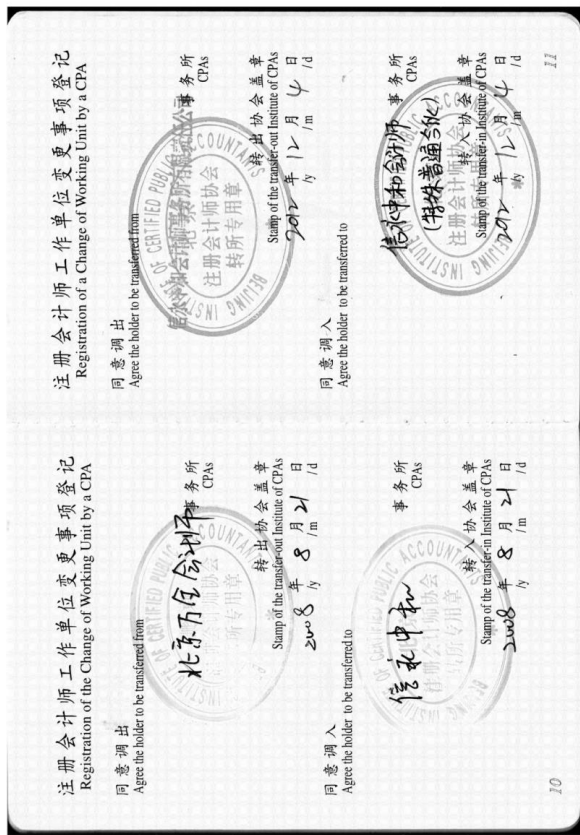 注册会计师工作单位变更事项登记
Registration of the Change of Working Unit by a CPA
同意调出
Agree the holder to be transferred from
北京万全会计师 事务所
CPAs
BEIJING INSTITUTE OF CERTIFIED PUBLIC ACCOUNTANTS
转所专用章
转出协会盖章
Stamp of the transfer-out Institute of CPAs
2008 年 8 月 21 日
/y /m /d
同意调入
Agree the holder to be transferred to
信永中和 事务所
CPAs
BEIJING INSTITUTE OF CERTIFIED PUBLIC ACCOUNTANTS
注册会计师协会
转所专用章
转入协会盖章
Stamp of the transfer-in Institute of CPAs
2008 年 8 月 21 日
/y /m /d
10
注册会计师工作单位变更事项登记
Registration of a Change of Working Unit by a CPA
同意调出
Agree the holder to be transferred from
信永中和会计师事务所有限责任公司 事务所
CPAs
BEIJING INSTITUTE OF CERTIFIED PUBLIC ACCOUNTANTS
注册会计师协会
转所专用章
转出协会盖章
Stamp of the transfer-out Institute of CPAs
2012 年 12 月 4 日
/y /m /d
同意调入
Agree the holder to be transferred to
信永中和会计师 事务所
(特殊普通合伙) CPAs
BEIJING INSTITUTE OF CERTIFIED PUBLIC ACCOUNTANTS
注册会计师协会
转所专用章
转入协会盖章
Stamp of the transfer-in Institute of CPAs
2012 年 12 月 4 日
/y /m /d
11